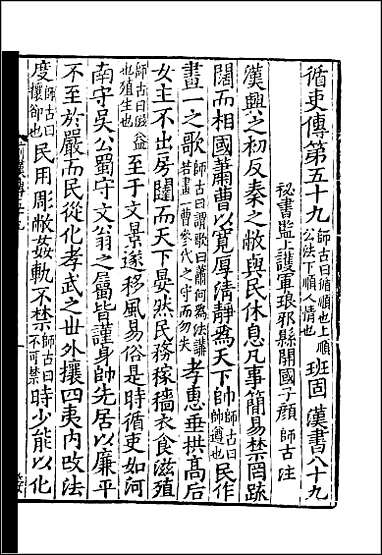 循吏傳第五十九 師古曰循順也上順公法下順人情也 班固 漢書八十九
秘書監上護軍琅邪縣開國子顏 師古 注
漢興之初反秦之敝與民休息凡事簡易禁罔疏
闊而相國蕭曹以寬厚清靜為天下帥 師古曰帥遵也 民作
畫一之歌 師古曰謂歌曰蕭何為法講若畫一曹參代之守而勿失 孝惠垂拱高后
女主不出房闥而天下晏然民務稼穡衣食滋殖
師古曰滋益也殖生也 至于文景遂移風易俗是時循吏如河
南守吳公蜀守文翁之屬皆謹身帥先居以廉平
不至於嚴而民從化孝武之世外攘四夷内改法
度 師古曰攘卻也 民用彫敝姦軌不禁 師古曰不可禁 時少能以化